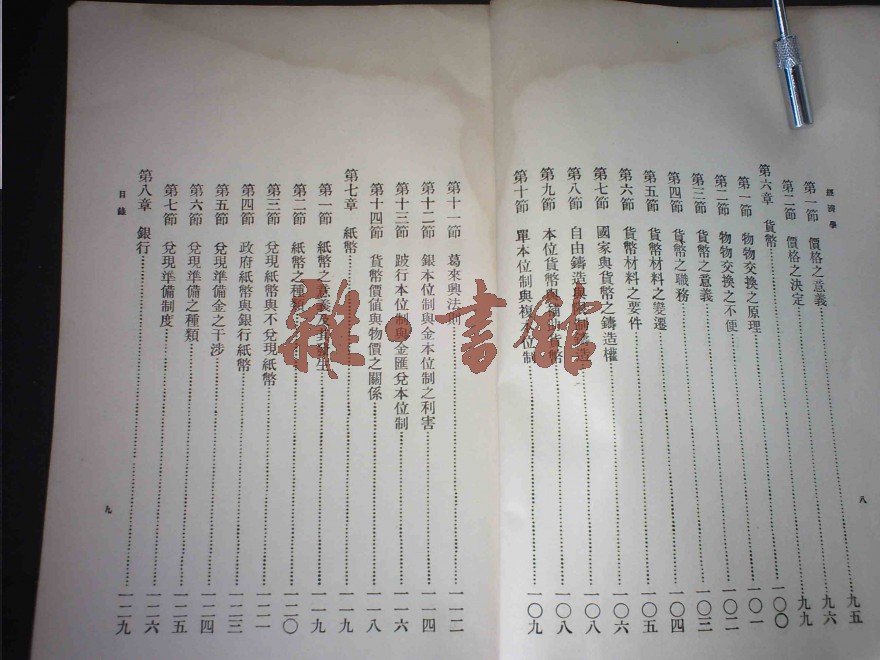 經濟學
第一節 價格之意義……九五
第二節 價格之決定……九六
第六章 貨幣……九九
第一節 物物交換之原理……一〇〇
第二節 物物交換之不便……一〇一
第三節 貨幣之意義……一〇二
第四節 貨幣之職務……一〇三
第五節 貨幣材料之變遷……一〇四
第六節 貨幣材料之要件……一〇五
第七節 國家與貨幣之鑄造權……
第八節 自由鑄造與限制鑄造……一〇八
第九節 本位貨幣與補助貨幣……一〇八
第十節 單本位制與複本位制……一〇九
八
第十一節 葛來興法則……一一二
第十二節 銀本位制與金本位制之利害……一一四
第十三節 跛行本位制與金匯兌本位制……一一六
第十四節 貨幣價值與物價之關係……一一八
第七章 紙幣……一一九
第一節 紙幣之意義及其發生……一一九
第二節 紙幣之種類……一二〇
第三節 兌現紙幣與不兌現紙幣……一二一
第四節 政府紙幣與銀行紙幣……一二三
第五節 兌現準備金之干涉……一二四
第六節 兌現準備之種類……一二五
第七節 兌現準備制度……一二六
第八章 銀行……一二九
目錄
九
雜·書館